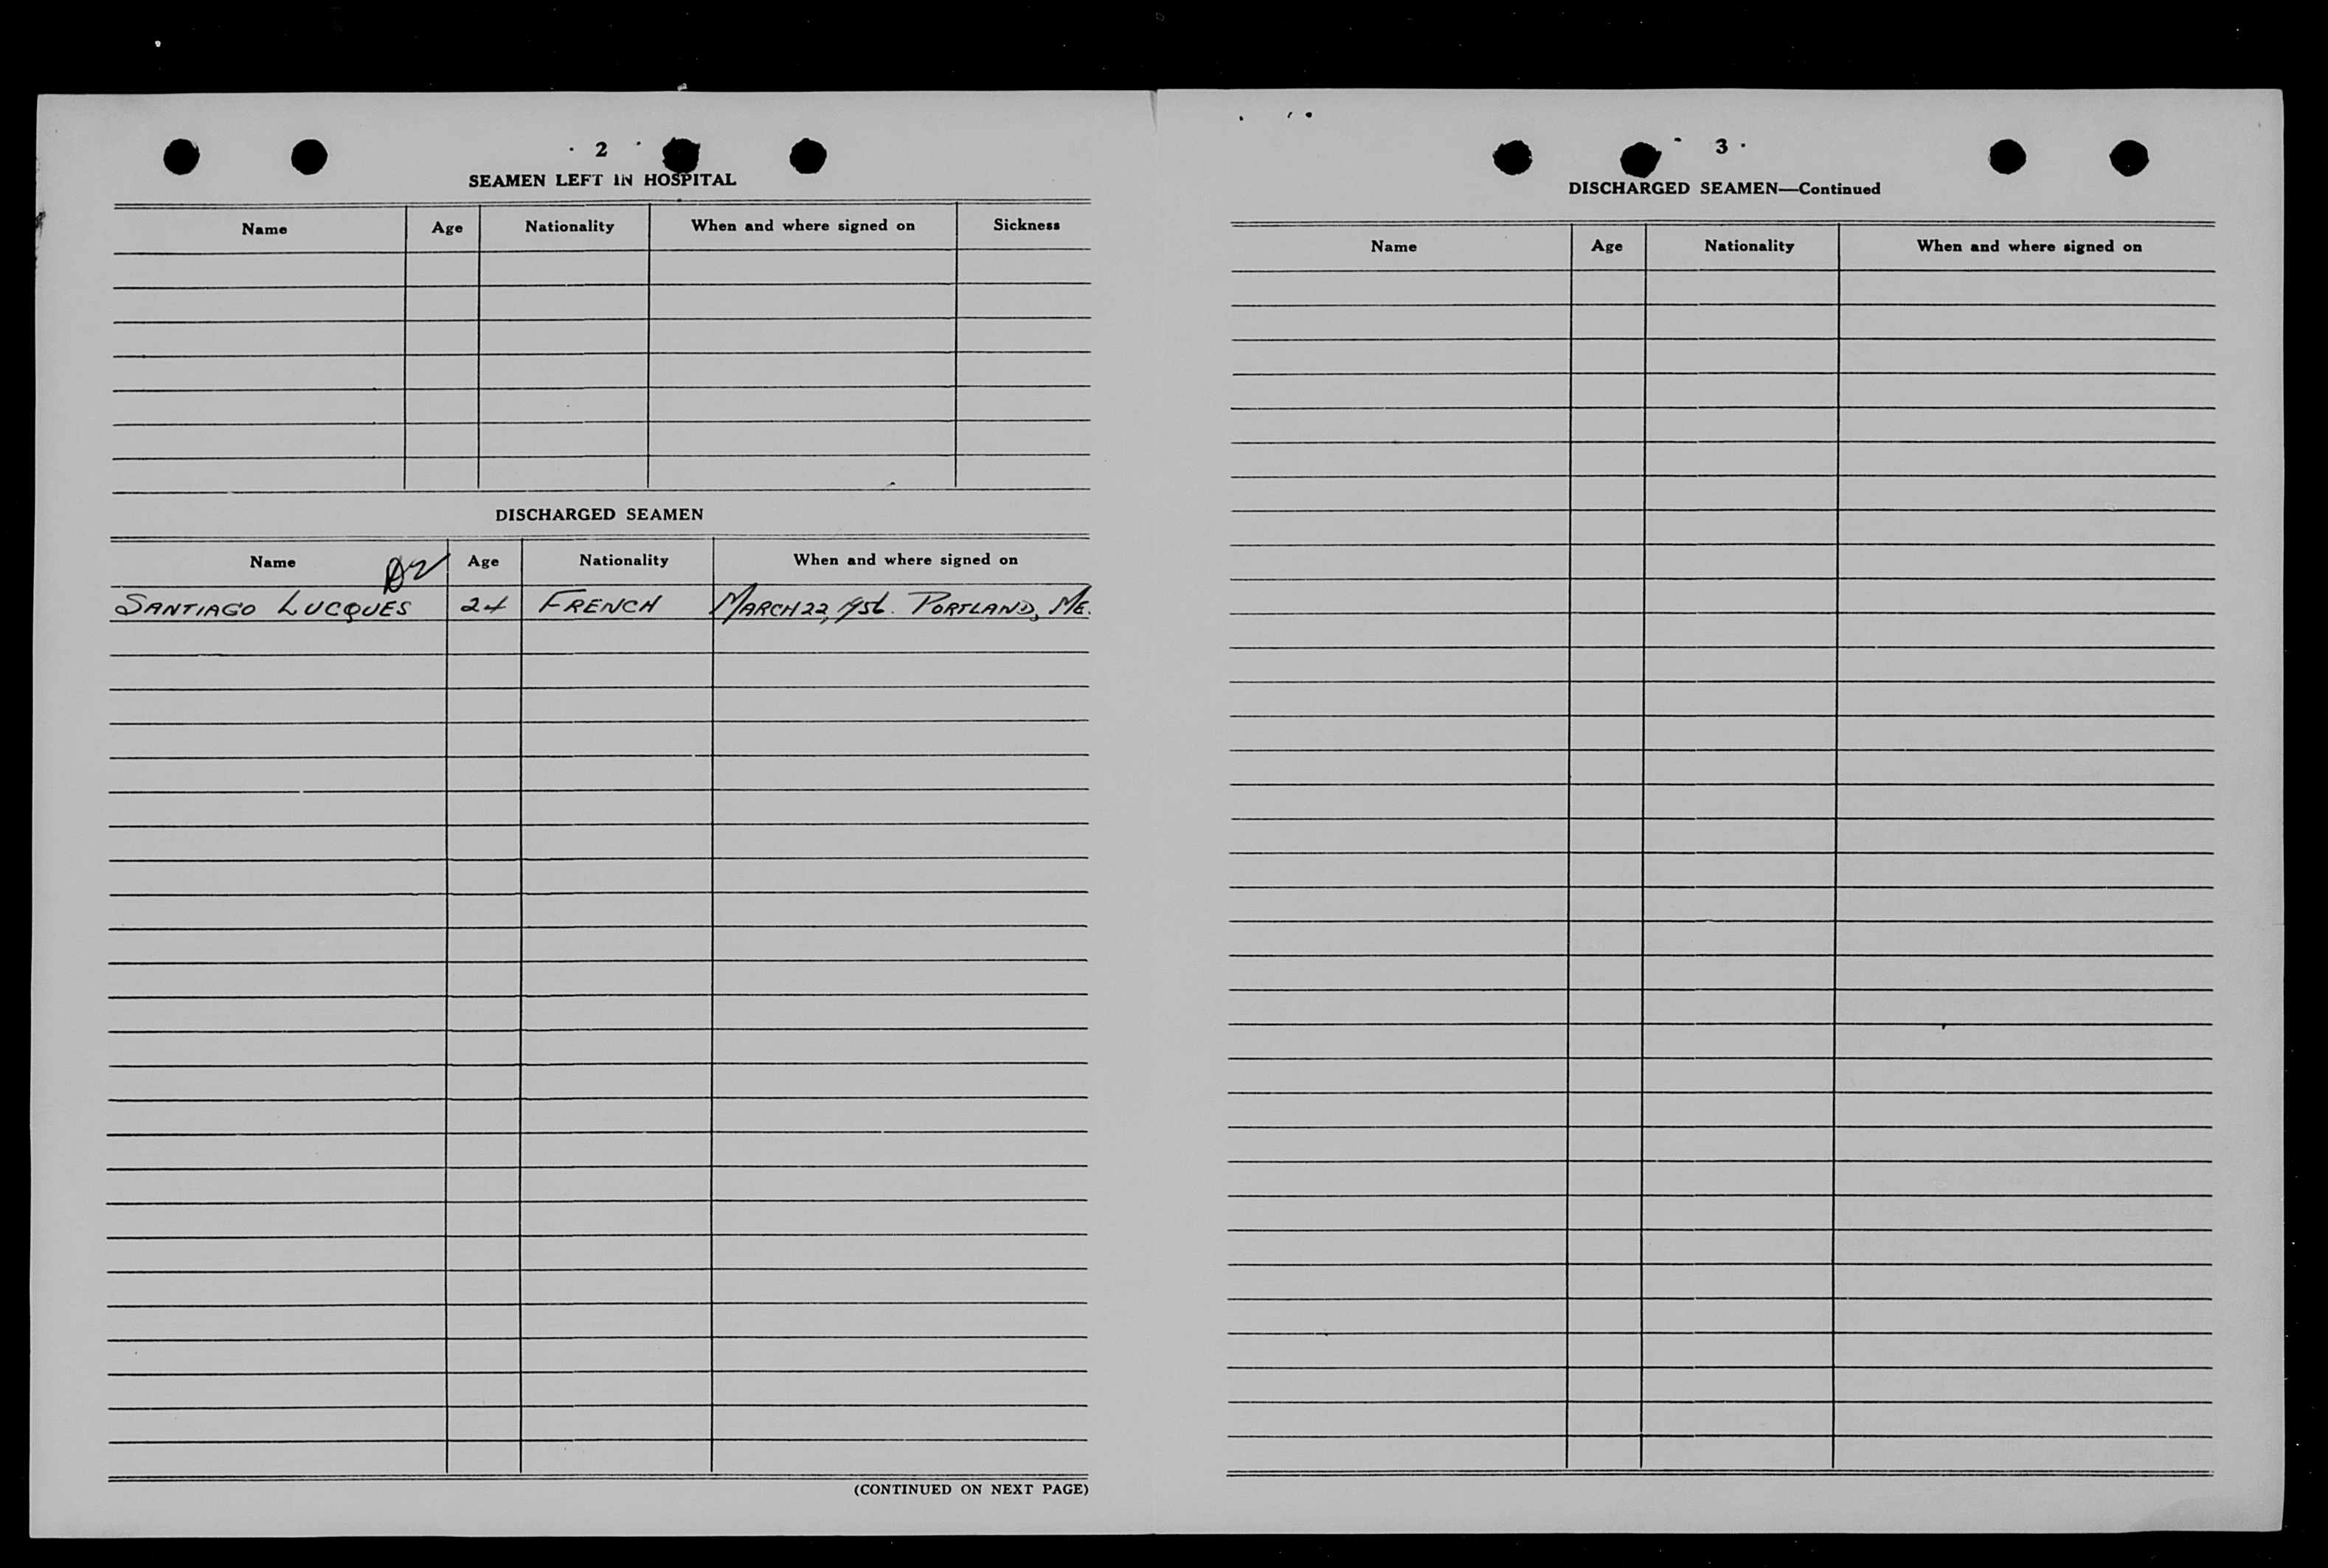 2
SEAMEN LEFT IN HOSPITAL
Name Age Nationality When and where signed on Sickness
DISCHARGED SEAMEN
Name Age Nationality When and where signed on
SANTIAGO LUCQUES 24 FRENCH MARCH 22, 1956. PORTLAND, ME.
(CONTINUED ON NEXT PAGE)
3
DISCHARGED SEAMEN—Continued
Name Age Nationality When and where signed on